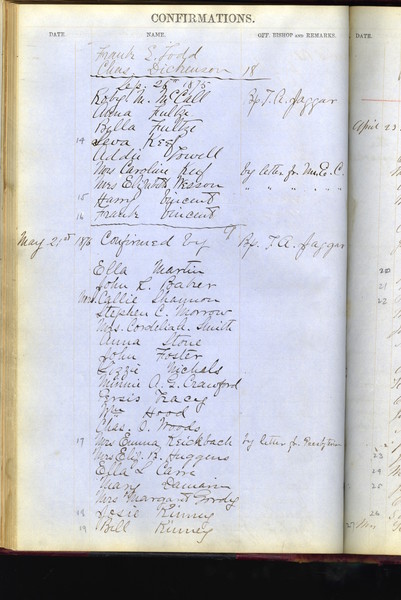 CONFIRMATIONS.
DATE. NAME. OFF. BISHOP AND REMARKS. DATE.
Frank S. Todd
Chas. Dickenson 18
Sep. 28th 1875
Robt M. McCall Bp. T. A. Jaggar
Anna Fultze
Bella Fultze
14 Leva Keef
Addie Powell
Mrs Caroline Keef by letter fr M. E. C.
Mrs Elizabeth Weason " " " "
15 Harry Vincent
16 Frank Vincent
May 21st 1876 Confirmed by Bp. T. A. Jaggar
Ella Martin
John R. Baker
Mrs. Callie Shannon
Stephen C. Morrow
Mrs. Cordelia A. Smith
Anna Stone
John Foster
Lizzie Nichals
Minnie A. G. Crawford
Persis Tracy
Wm Hood
Chas. O. Woods
17 Mrs Emma Reickback by letter fr. Presbyterian
Mrs Eliz. B. Huggens
Ella L. Carr
Mary Damain
Mrs Margart Gordy
18 Josie Kinney
19 Bill Kinney
April 23
20
21
22
23
24
25
26
27 Mrs